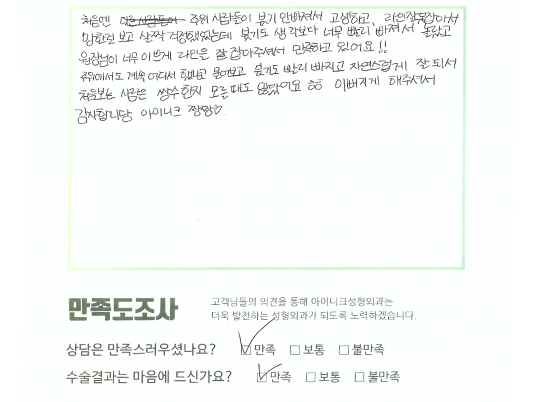 처음엔 주위 사람들이 붓기 안빠져서 고생하고, 라인잘못잡아서
망한걸 보고 살짝 걱정했었는데 붓기도 생각보다 너무 빨리 빠져서 놀랐고
원장님이 너무 이쁘게 라인은 잘 잡아주셔서 만족하고 있어요!!
주위에서도 계속 어디서 했냐고 물어보고 붓기도 빨리 빠지고 자연스럽게 잘 되서
처음보는 사람은 쌍수한지 모를때도 많았어요 ㅎㅎ 이뻐지게 해주셔서
감사합니당 아이니크 짱짱♡
만족도조사
고객님들의 의견을 통해 아이니크성형외과는
더욱 발전하는 성형외과가 되도록 노력하겠습니다.
상담은 만족스러우셨나요? ☑ 만족 □ 보통 □ 불만족
수술결과는 마음에 드신가요? ☑ 만족 □ 보통 □ 불만족